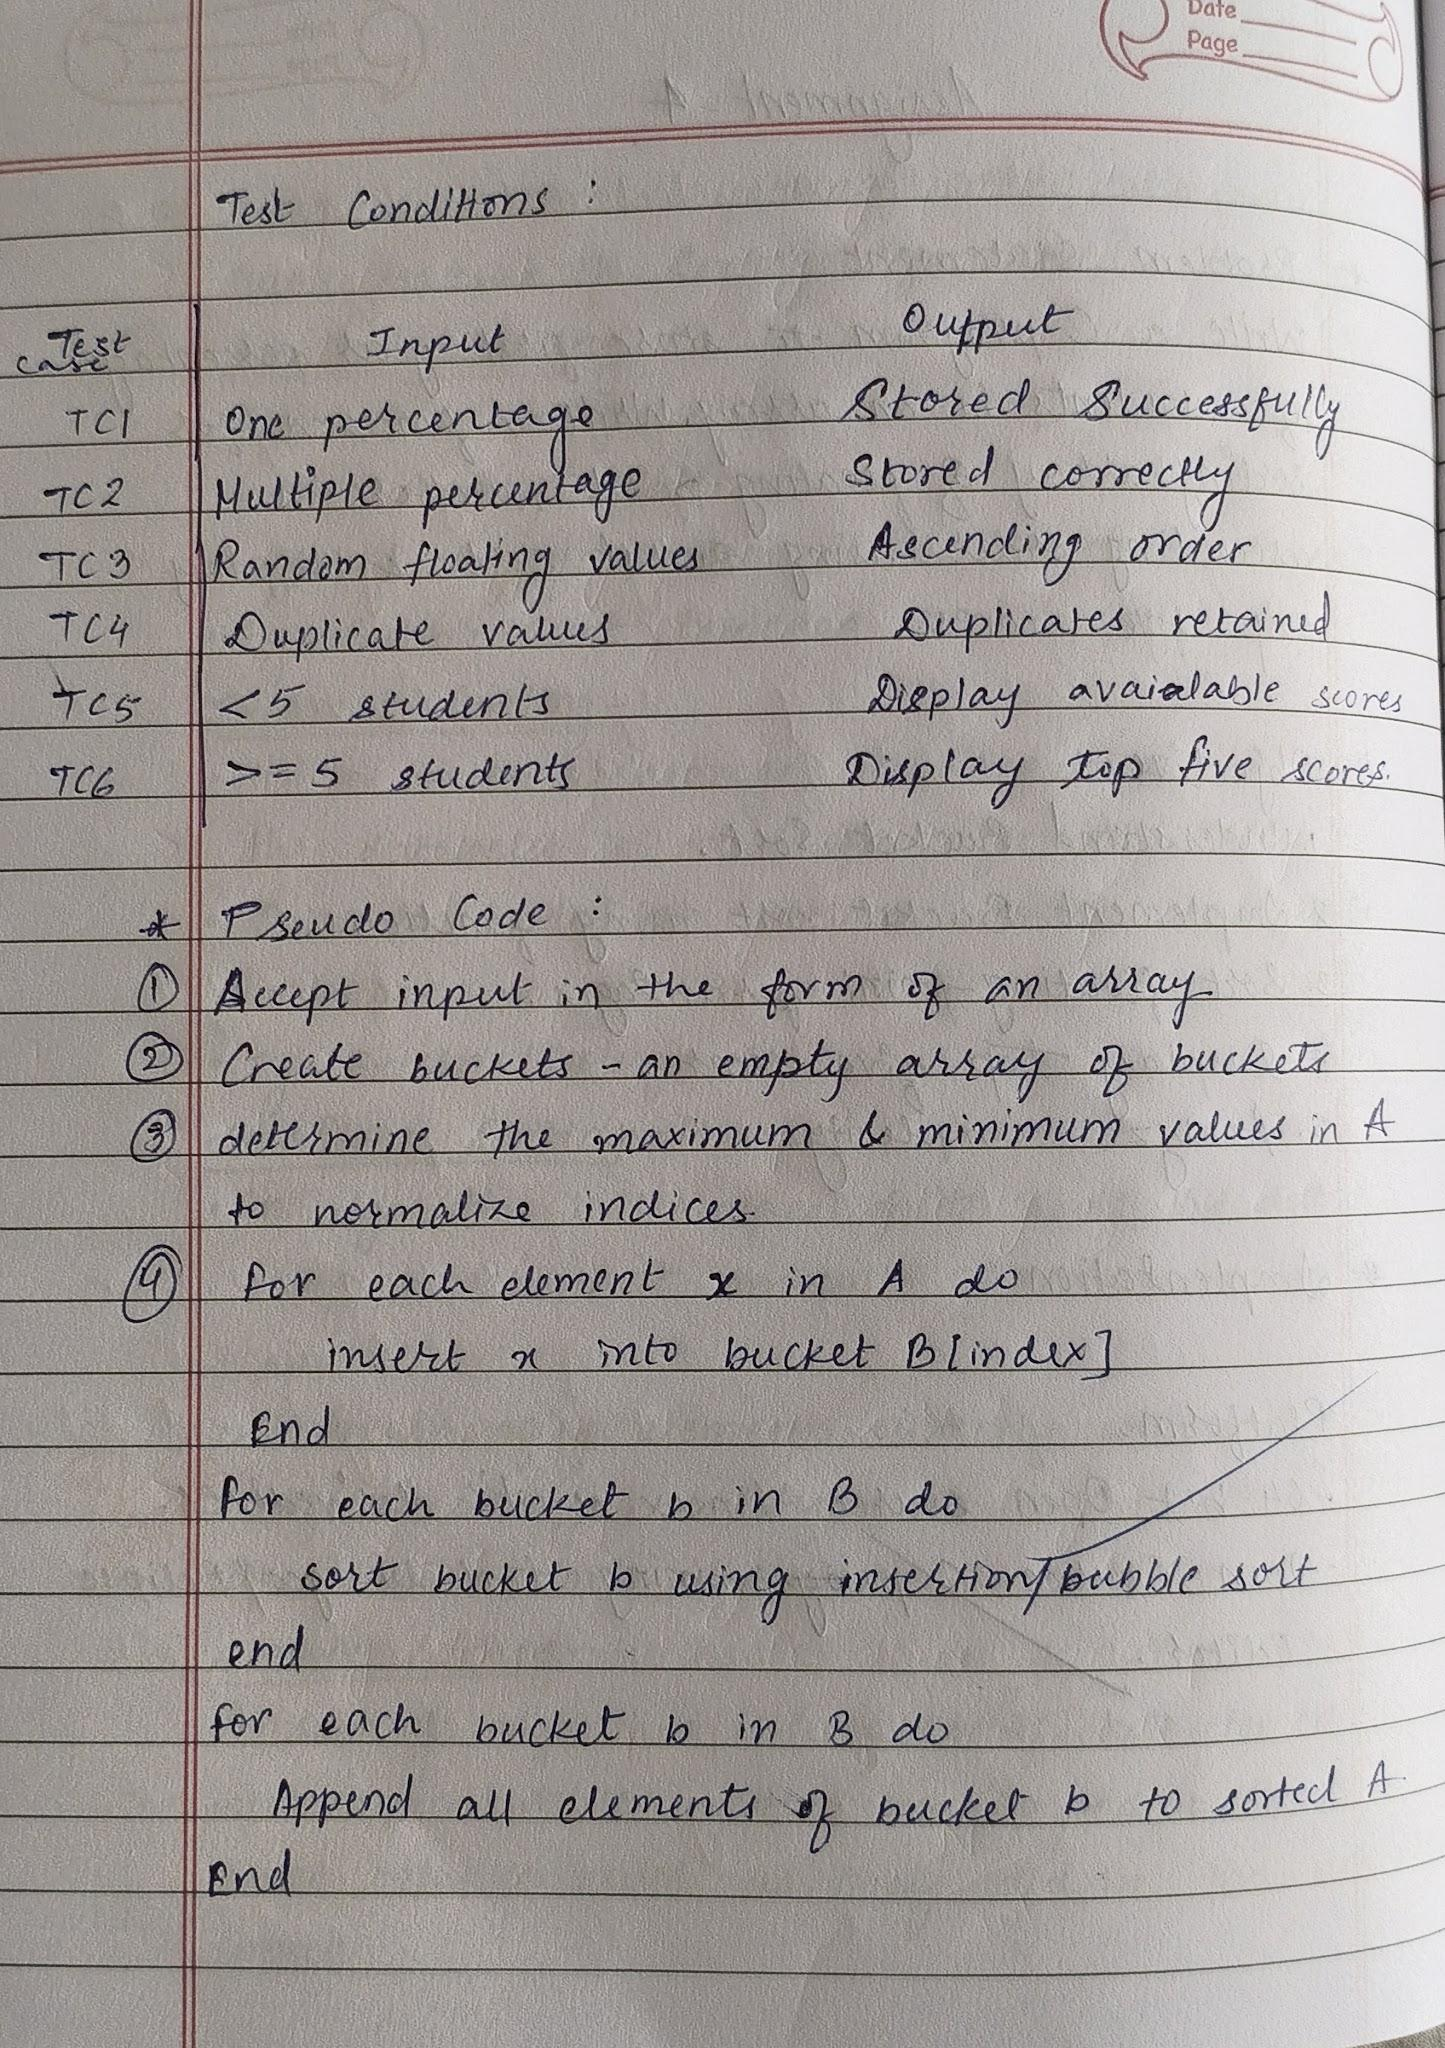 Date
Page
Test Conditions :
Test case Input Output
TC1 One percentage Stored Successfully
TC2 Multiple percentage Stored correctly
TC3 Random floating values Ascending order
TC4 Duplicate values Duplicates retained
TC5 <5 students Display avaialable scores
TC6 >=5 students Display top five scores.
* Pseudo Code :
① Accept input in the form of an array
② Create buckets - an empty array of buckets
③ determine the maximum & minimum values in A
to normalize indices.
④ for each element x in A do
insert x into bucket B[index]
End
for each bucket b in B do
sort bucket b using insertion/bubble sort
end
for each bucket b in B do
Append all elements of bucket b to sorted A
End